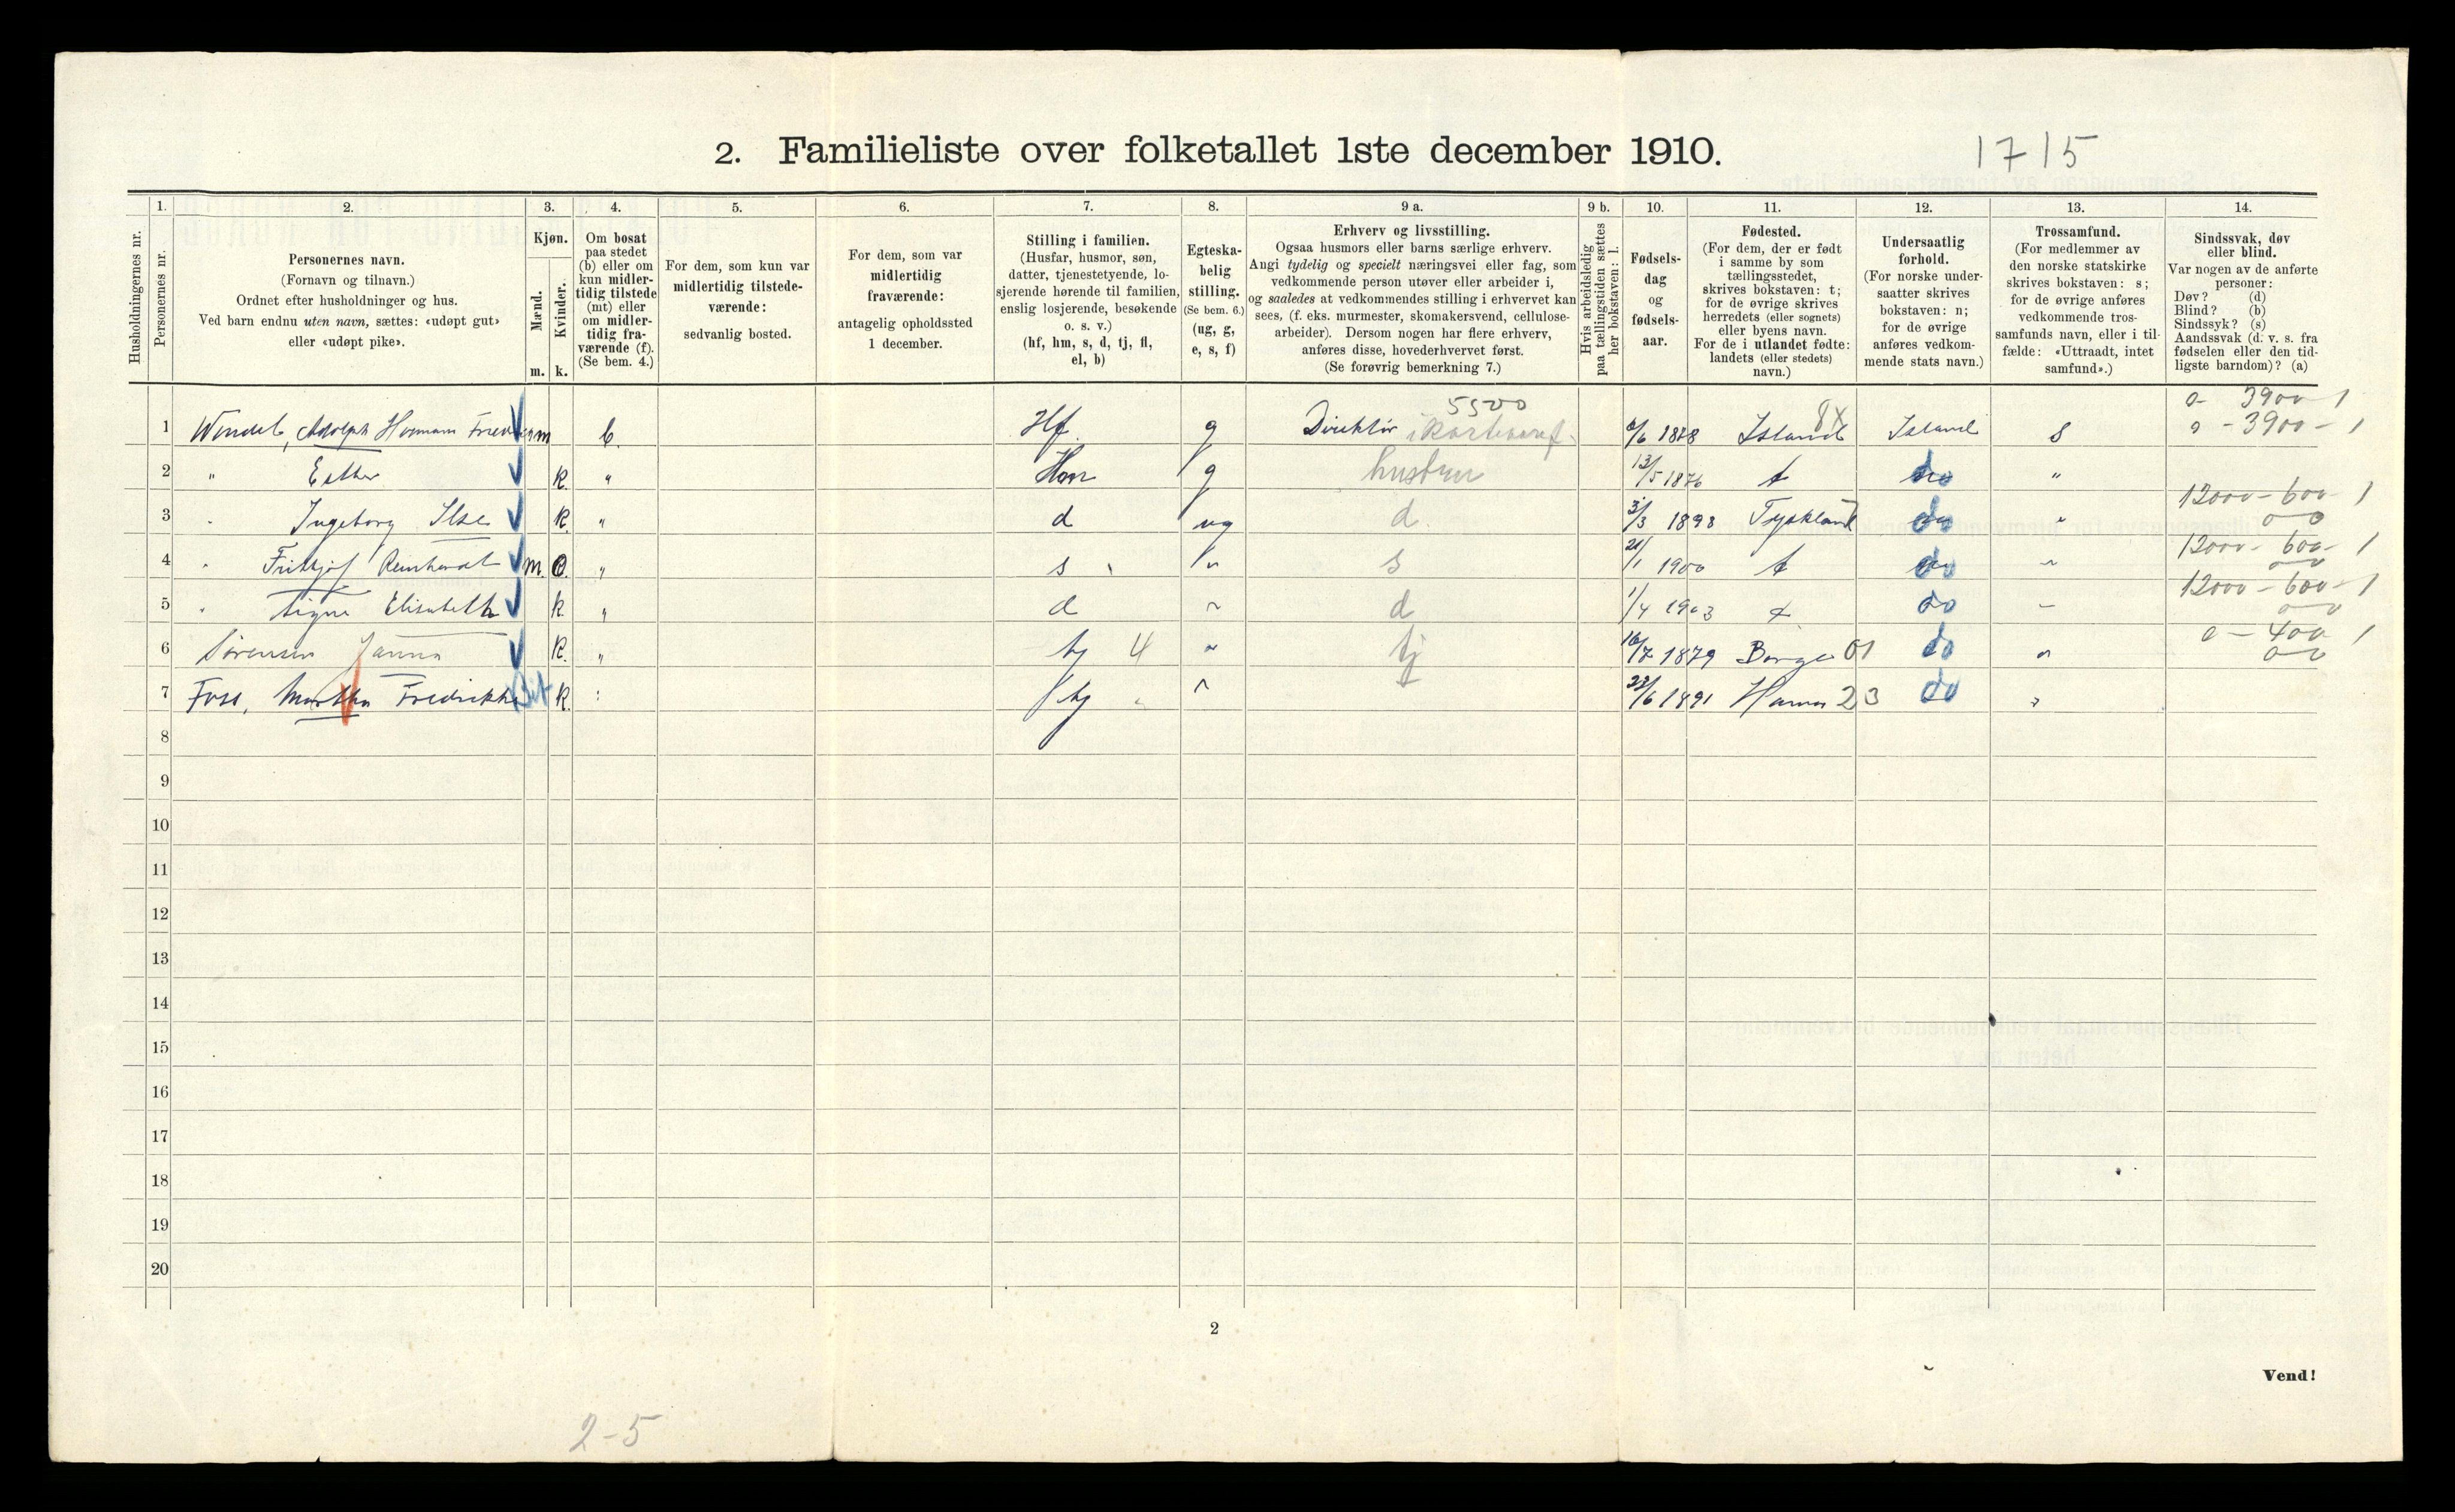 2. Familieliste over folketallet 1ste december 1910.
1715
Husholdningernes nr.
1.
Personernes nr.
2.
Personernes navn.
(Fornavn og tilnavn.)
Ordnet efter husholdninger og hus.
Ved barn endnu uten navn, sættes: «udøpt gut»
eller «udøpt pike».
3.
Kjøn.
Mænd.
m.
Kvinder.
k.
4.
Om bosat
paa stedet
(b) eller om
kun midler-
tidig tilstede
(mt) eller
om midler-
tidig fra-
værende (f).
(Se bem. 4.)
5.
For dem, som kun var
midlertidig tilstede-
værende:
sedvanlig bosted.
6.
For dem, som var
midlertidig
fraværende:
antagelig opholdssted
1 december.
7.
Stilling i familien.
(Husfar, husmor, søn,
datter, tjenestetyende, lo-
sjerende hørende til familien,
enslig losjerende, besøkende
o. s. v.)
(hf, hm, s, d, tj, fl,
el, b)
8.
Egteska-
belig
stilling.
(Se bem. 6.)
(ug, g,
e, s, f)
9 a.
Erhverv og livsstilling.
Ogsaa husmors eller barns særlige erhverv.
Angi tydelig og specielt næringsvei eller fag, som
vedkommende person utøver eller arbeider i,
og saaledes at vedkommendes stilling i erhvervet kan
sees, (f. eks. murmester, skomakersvend, cellulose-
arbeider). Dersom nogen har flere erhverv,
anføres disse, hovederhvervet først.
(Se forøvrig bemerkning 7.)
9 b.
Hvis arbeidsledig
paa tællingstiden sættes
her bokstaven: l.
10.
Fødsels-
dag
og
fødsels-
aar.
11.
Fødested.
(For dem, der er født
i samme by som
tællingsstedet,
skrives bokstaven: t;
for de øvrige skrives
herredets (eller sognets)
eller byens navn.
For de i utlandet fødte:
landets (eller stedets)
navn.)
12.
Undersaatlig
forhold.
(For norske under-
saatter skrives
bokstaven: n;
for de øvrige
anføres vedkom-
mende stats navn.)
13.
Trossamfund.
(For medlemmer av
den norske statskirke
skrives bokstaven: s;
for de øvrige anføres
vedkommende tros-
samfunds navn, eller i til-
fælde: «Uttraadt, intet
samfund».)
14.
Sindssvak, døv
eller blind.
Var nogen av de anførte
personer:
Døv? (d)
Blind? (b)
Sindssyk? (s)
Aandssvak (d. v. s. fra
fødselen eller den tid-
ligste barndom)? (a)
5500 0 - 3900 1
1 Wendel, Adolph Hermann m b. Hf. g Direktør 1878 Island 8X Island s 0 - 3900 - 1
2 " Esther k. " Hm g hustru 13/5 1876 t do "
3 Ingeborg Ilse k. " d ug d. 3/3 1898 Tyskland do " 12000 - 600 1
4 Frithjof Reinhardt m. " s " s 21/1 1900 t do " 12000 - 600 - 1
5 Signe Elisabeth k. " d " d 1/4 1903 t do " 12000 - 600 - 1
6 Sørensen Janna k. " tj 4 " tj 16/7 1879 Borge 01 do " 0 - 400 1
7 Foss, Martha Fredrikke k. tj " 23/6 1891 Hamar 23 do "
8
9
10
11
12
13
14
15
16
17
18
19
20
2
Vend!
2-5